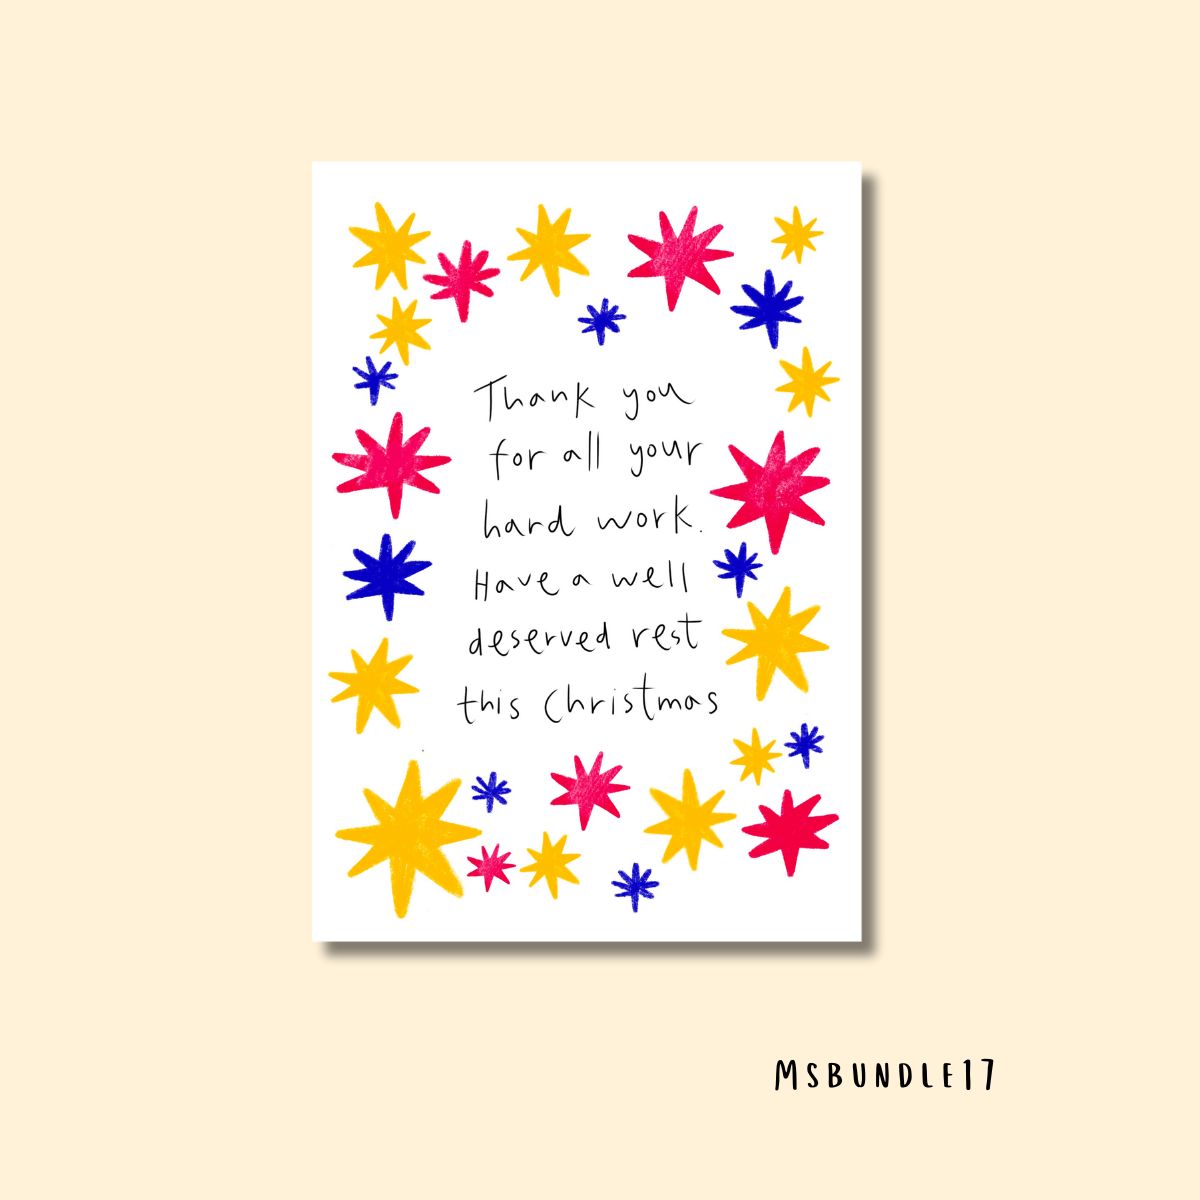 Thank you
for all your
hard work.
Have a well
deserved rest
this Christmas
MSBUNDLE17